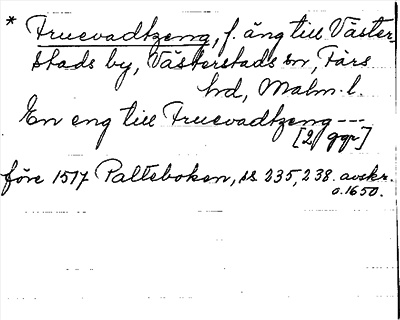 * Fruevadtzeng, f. äng till Väster-
stads by, Västerstads sn, Färs
hd, Malm. l.
En eng till Fruevadtzeng ---
[2 ggr]
före 1517 Palteboken, ss 235, 238. avskr.
o. 1650.